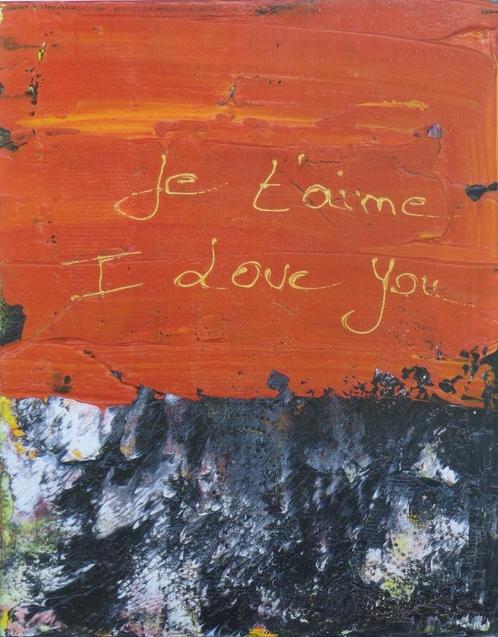 Je t'aime
I Love you